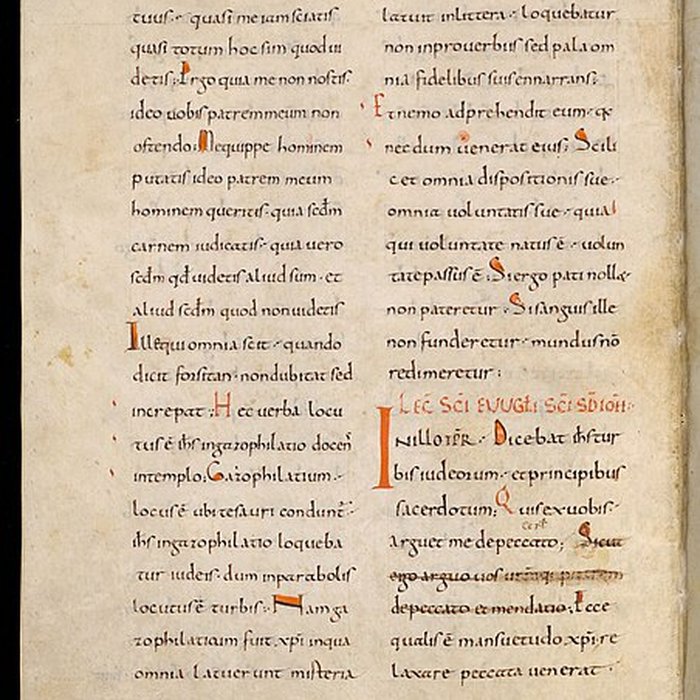 tuus · quasi me iam sciatis
quasi totum hoc sim quod ui
detis; Ergo quia me non nostis
ideo uobis patrem meum non
ostendo; Me quippe hominem
putatis ideo patrem meum
hominem queritis · quia scdm
carnem iudicatis · quia uero
scdm qd uidetis aliud sum · et
aliud scdm quod non uidetis
Ille qui omnia scit · quando
dicit forsitan · non dubitat sed
increpat; Hec uerba locu
tus ē ihs in gazophilatio docen̄
in templo; Gazophilatium ·
locus ē ubi tesauri condunt̄ ·
ihs in gazophilatio loqueba
tur iudeis · dum in parabolis
locutus ē turbis; Nam ga
zophilatium fuit xpi in qua
omnia latuerunt misteria
latuit in littera · loquebatur
non in prouerbiis sed palam om
nia fidelibus suis ennarrans;
Et nemo adprehendit eum · q̄
nec dum uenerat eius; Scili
cet omnia dispositionis sue ·
omnia uoluntatis sue · quia
qui uoluntate natus ē · volun
tate passus ē; Si ergo pati noll&
non pateretur · Si sanguis ille
non funderetur · mundus nō
redimeretur:
LEC̄ SC̄I EVVGLI SC̄I SD IOH̄
IN ILLO TP̄R · Dicebat ihs tur
bis iudeorum · et principibus
sacerdotum; Quis ex uobis ·
arguet me de peccato; Sicut
ego arguo uos
de peccato et mendatio; Ecce
qualis ē mansuetudo xpi · re
laxare peccata uenerat ·